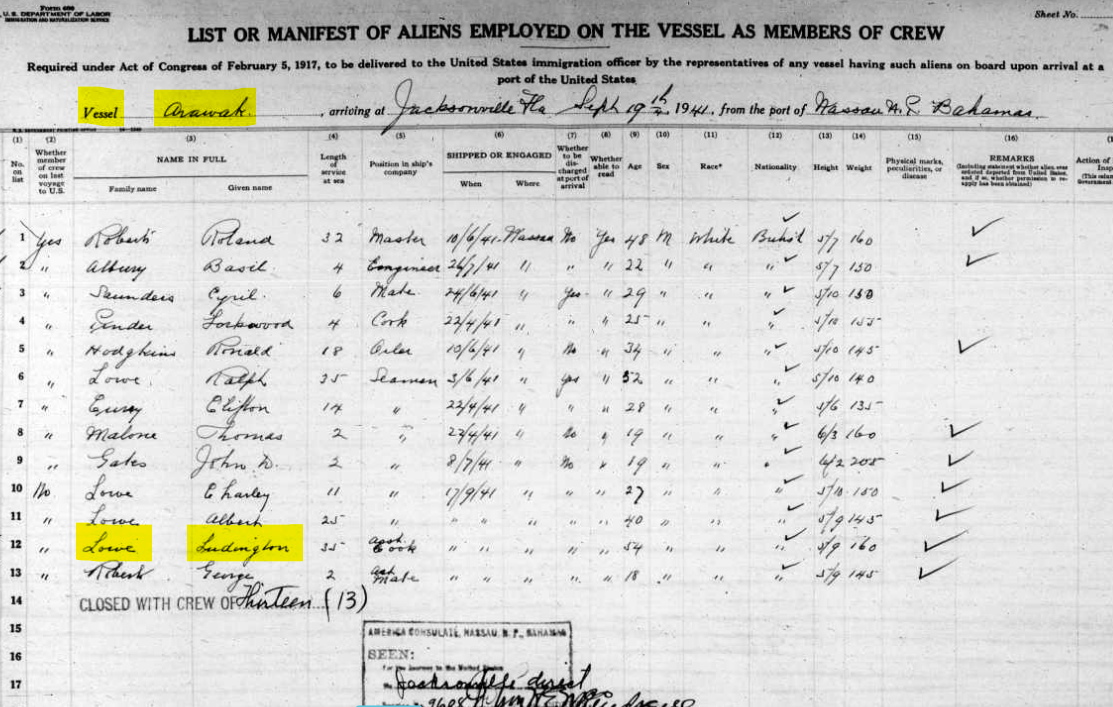 Form 680
U. S. DEPARTMENT OF LABOR
IMMIGRATION AND NATURALIZATION SERVICE
Sheet No.
LIST OR MANIFEST OF ALIENS EMPLOYED ON THE VESSEL AS MEMBERS OF CREW
Required under Act of Congress of February 5, 1917, to be delivered to the United States immigration officer by the representatives of any vessel having such aliens on board upon arrival at a
port of the United States
Vessel Arawak, arriving at Jacksonville Fla Sept 19th, 1941, from the port of Nassau N.P. Bahamas
(1) (2) (3) (4) (5) (6) (7) (8) (9) (10) (11) (12) (13) (14) (15) (16)
No. on list Whether member of crew on last voyage to U.S. NAME IN FULL Family name Given name Length of service at sea Position in ship's company SHIPPED OR ENGAGED When Where Whether to be discharged at port of arrival Whether able to read Age Sex Race* Nationality Height Weight Physical marks, peculiarities, or disease REMARKS (Including statement whether alien ever ordered deported from United States, and if so, whether permission to reapply has been obtained) Action of
1 Yes Roberts Roland 32 Master 10/6/41 Nassau No Yes 48 M White British 5/7 160
2 " Albury Basil 4 Engineer 26/7/41 " " " 22 " " " 5/7 150
3 " Saunders Cyril 6 Mate 24/6/41 " Yes " 29 " " " 5/10 150
4 " Pinder Lockwood 4 Cook 22/4/41 " " " 25 " " " 5/10 155
5 " Hodgkins Ronald 18 Oiler 10/6/41 " No " 34 " " " 5/10 145
6 " Lowe Ralph 35 Seaman 3/6/41 " Yes " 52 " " " 5/10 140
7 " Curry Clifton 14 " 22/4/41 " " " 28 " " " 5/6 135
8 " Malone Thomas 2 " 22/4/41 " No " 19 " " " 6/3 160
9 " Gates John D. 2 " 8/7/41 " No " 19 " " " 6/2 205
10 No Lowe Charley 11 " 17/9/41 " " " 27 " " " 5/10 150
11 " Lowe Albert 25 " " " " " 40 " " " 5/9 145
12 " Lowe Ludington 35 asst. Cook " " " " 54 " " " 5/9 160
13 " Robert George 2 Mate " " " " 18 " " " 5/9 145
14 CLOSED WITH CREW OF Thirteen (13)
15
AMERICA CONSULATE, NASSAU, N. P., BAHAMAS
16 SEEN:
For the Journey to the United States
17 Jacksonville direct